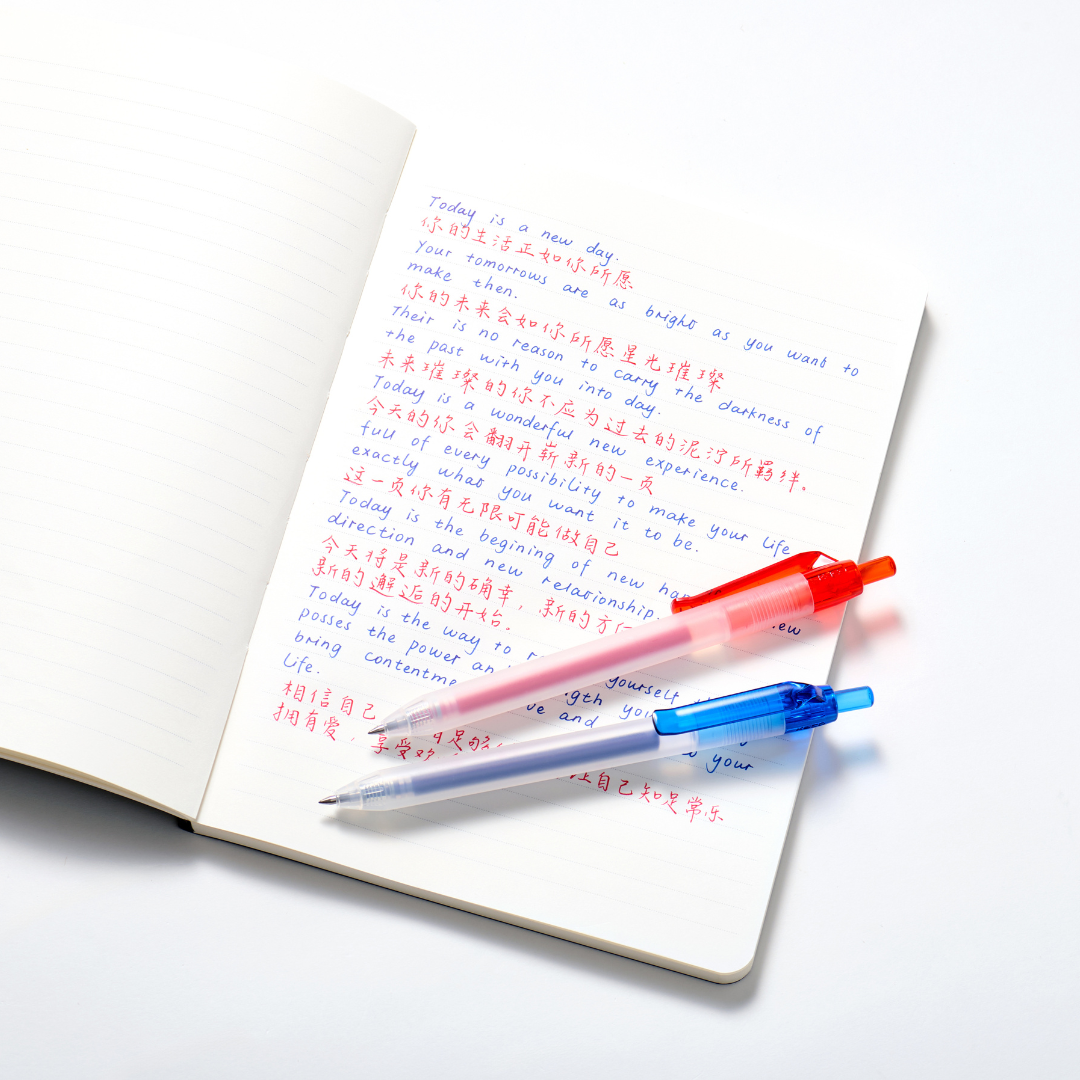 Today is a new day.
你的生活正如你所愿
Your tomorrows are as bright as you want to
make then.
你的未来会如你所愿星光璀璨
Their is no reason to carry the darkness of
the past with you into day.
未来璀璨的你不应为过去的泥泞所羁绊。
Today is a wonderful new experience.
今天的你会翻开崭新的一页
full of every possibility to make your life
exactly what you want it to be.
这一页你有无限可能做自己
Today is the begining of new
direction and new relationship.
今天将是新的确幸，新的方
新的邂逅的开始。
Today is the way to yourself
posses the power you
bring and your
life.
相信自己 足够
拥有爱，享受 自己知足常乐